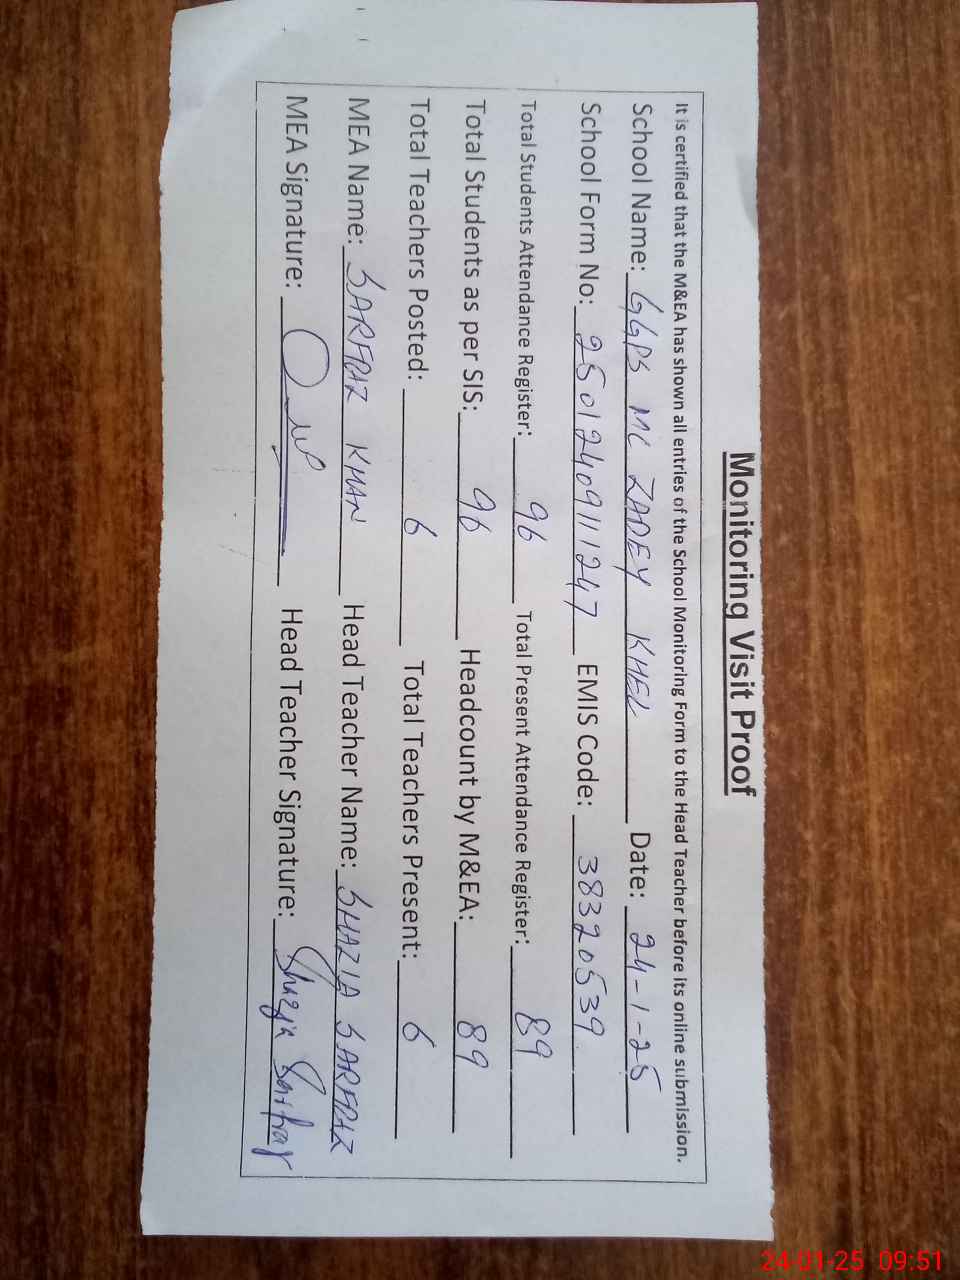 Monitoring Visit Proof
It is certified that the M&EA has shown all entries of the School Monitoring Form to the Head Teacher before its online submission.
School Name: GGPS MC ZADEY KHEL Date: 24-1-25
School Form No: 250124091111247 EMIS Code: 38320539
Total Students Attendance Register: 96 Total Present Attendance Register: 89
Total Students as per SIS: 96 Headcount by M&EA: 89
Total Teachers Posted: 6 Total Teachers Present: 6
MEA Name: SARFRAZ KHAN Head Teacher Name: SHAZIA SARFRAZ
MEA Signature: Head Teacher Signature: Shazia Sarfraz
24-01-25 09:51